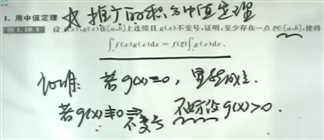 1. 用中值定理 ☆ 推广的积分中值定理
设f(x),g(x)在[a,b]上连续且g(x)不变号,证明,至少存在一点ξ∈[a,b],使得
∫f(x)g(x)dx=f(ξ)∫g(x)dx.
证:若g(x)≡0,显然成立.
若g(x)≢0 ⇒ 不妨设g(x)>0.
不变号